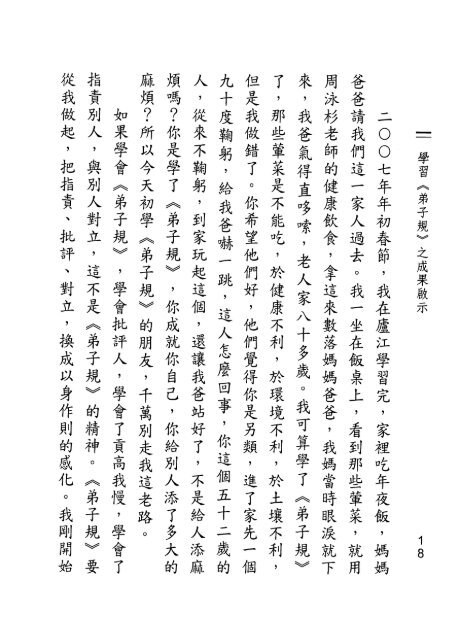 學習《弟子規》之成果啟示
18
二○○七年年初春節，我在廬江學習完，家裡吃年夜飯，媽媽
爸爸請我們這一家人過去。我一坐在飯桌上，看到那些葷菜，就用
周泳杉老師的健康飲食，拿這來數落媽媽爸爸，我媽當時眼淚就下
來，我爸氣得直哆嗦，老人家八十多歲。我可算學了《弟子規》
了，那些葷菜是不能吃，於健康不利，於環境不利，於土壤不利，
但是我做錯了。你希望他們好，他們覺得你是另類，進了家先一個
九十度鞠躬，給我爸嚇一跳，這人怎麼回事，你這個五十二歲的
人，從來不鞠躬，到家玩起這個，還讓我爸站好了，不是給人添麻
煩嗎？你是學了《弟子規》，你成就你自己，你給別人添了多大的
麻煩？所以今天初學《弟子規》的朋友，千萬別走我這老路。
如果學會《弟子規》，學會批評人，學會了貢高我慢，學會了
指責別人，與別人對立，這不是《弟子規》的精神。《弟子規》要
從我做起，把指責、批評、對立，換成以身作則的感化。我剛開始